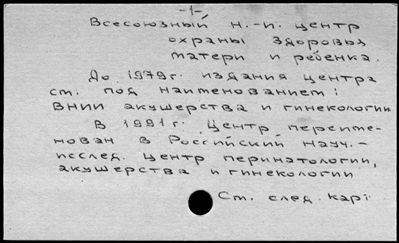 -1-
Всесоюзный н.-и. центр
охраны здоровья
матери и ребенка.
До 1979г. издания центра
ст. под наименованием:
ВНИИ акушерства и гинекологии
В 1991г. Центр переиме-
нован в Российский науч.-
исслед. центр перинатологии,
акушерства и гинекологии
Ст. след. кар